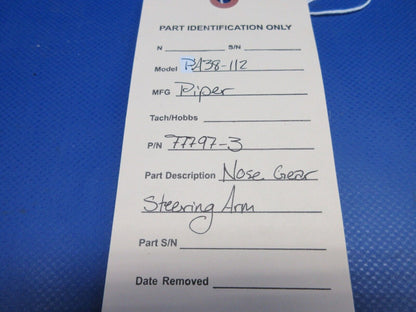 PART IDENTIFICATION ONLY
N S/N
Model PA38-112
MFG Piper
Tach/Hobbs
P/N 77797-3
Part Description Nose Gear
Steering Arm
Part S/N
Date Removed